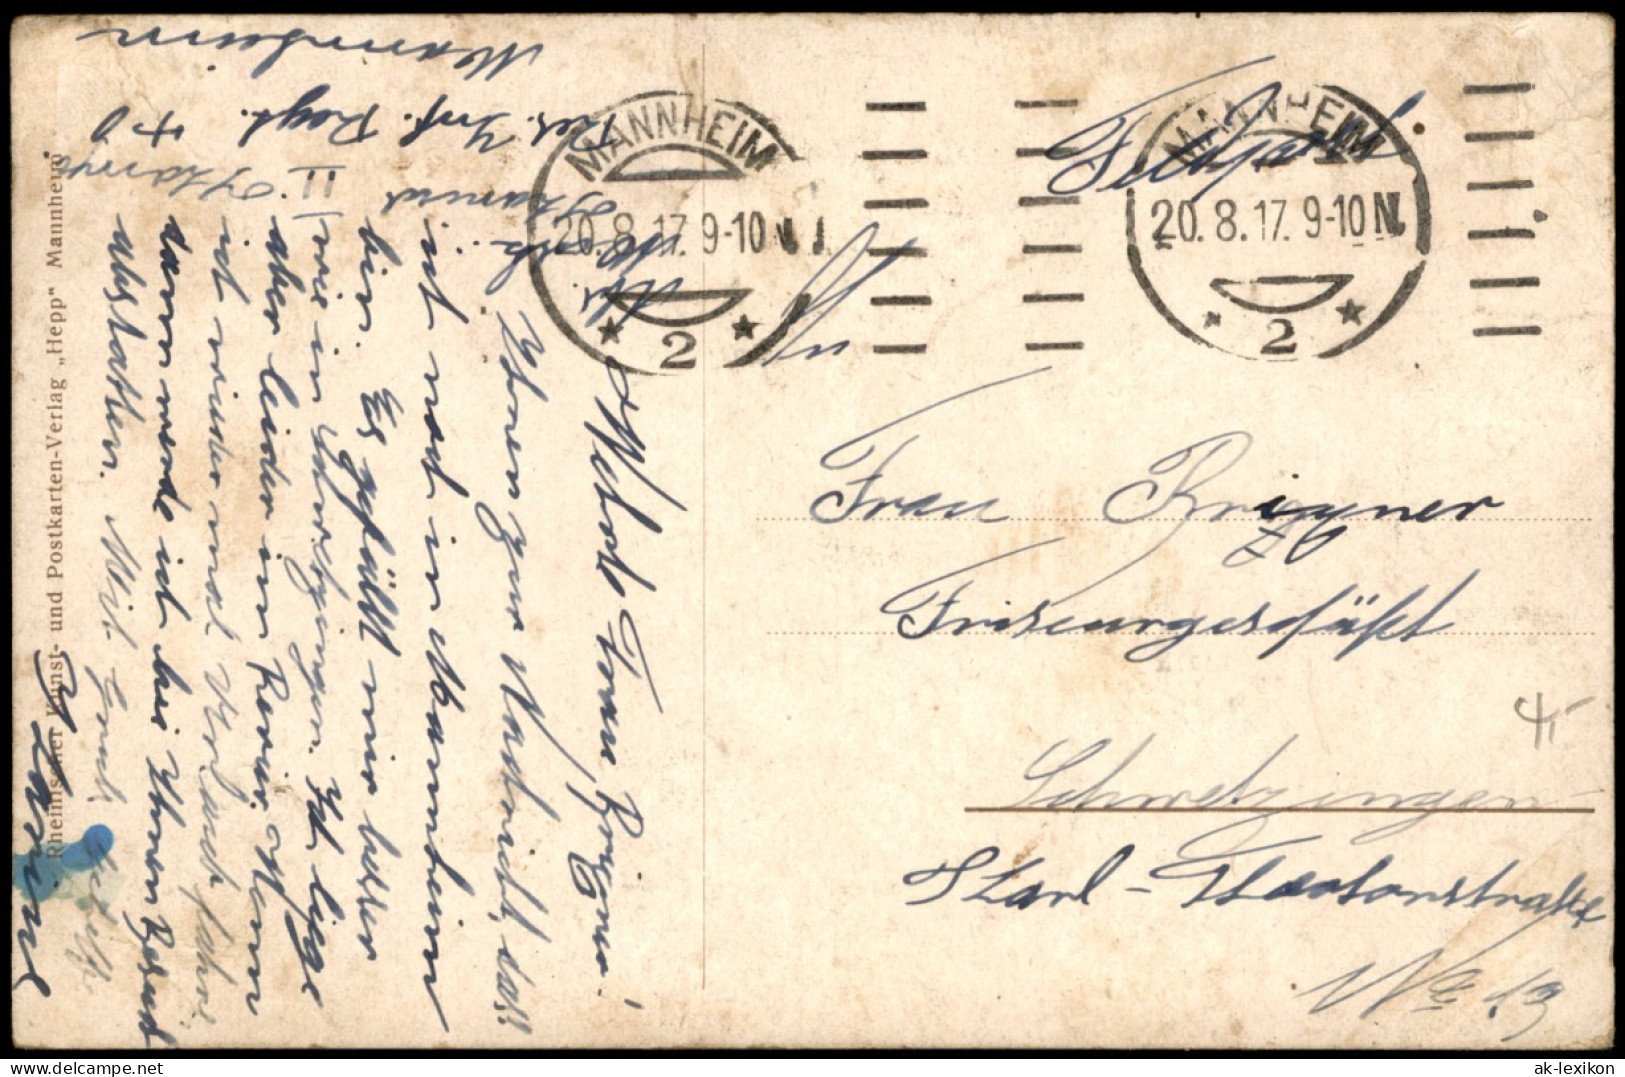 Feldpost
MANNHEIM
20.8.17. 9-10 N.
* 2 *
MANNHEIM
20.8.17. 9-10 N.
* 2 *
An
Frau Brigner
Friseurgeschäft
Schwetzingen
Karl-Theodorstraße
No 19
Mannheim
Res. Inf. Regt. 40
II
Werte Frau Brigner!
Ihnen zur Nachricht, dass
ich noch in Mannheim
bin. Es gefällt mir besser
wie in Schwetzingen. Ich liege
aber leider im Revier. Wenn
ich wieder mal Urlaub fahre,
dann werde ich bei Ihnen Besuch
abstatten. Mit Gruß
Rheinischer Kunst- und Postkarten-Verlag „Hepp" Mannheim
ak-lexikon